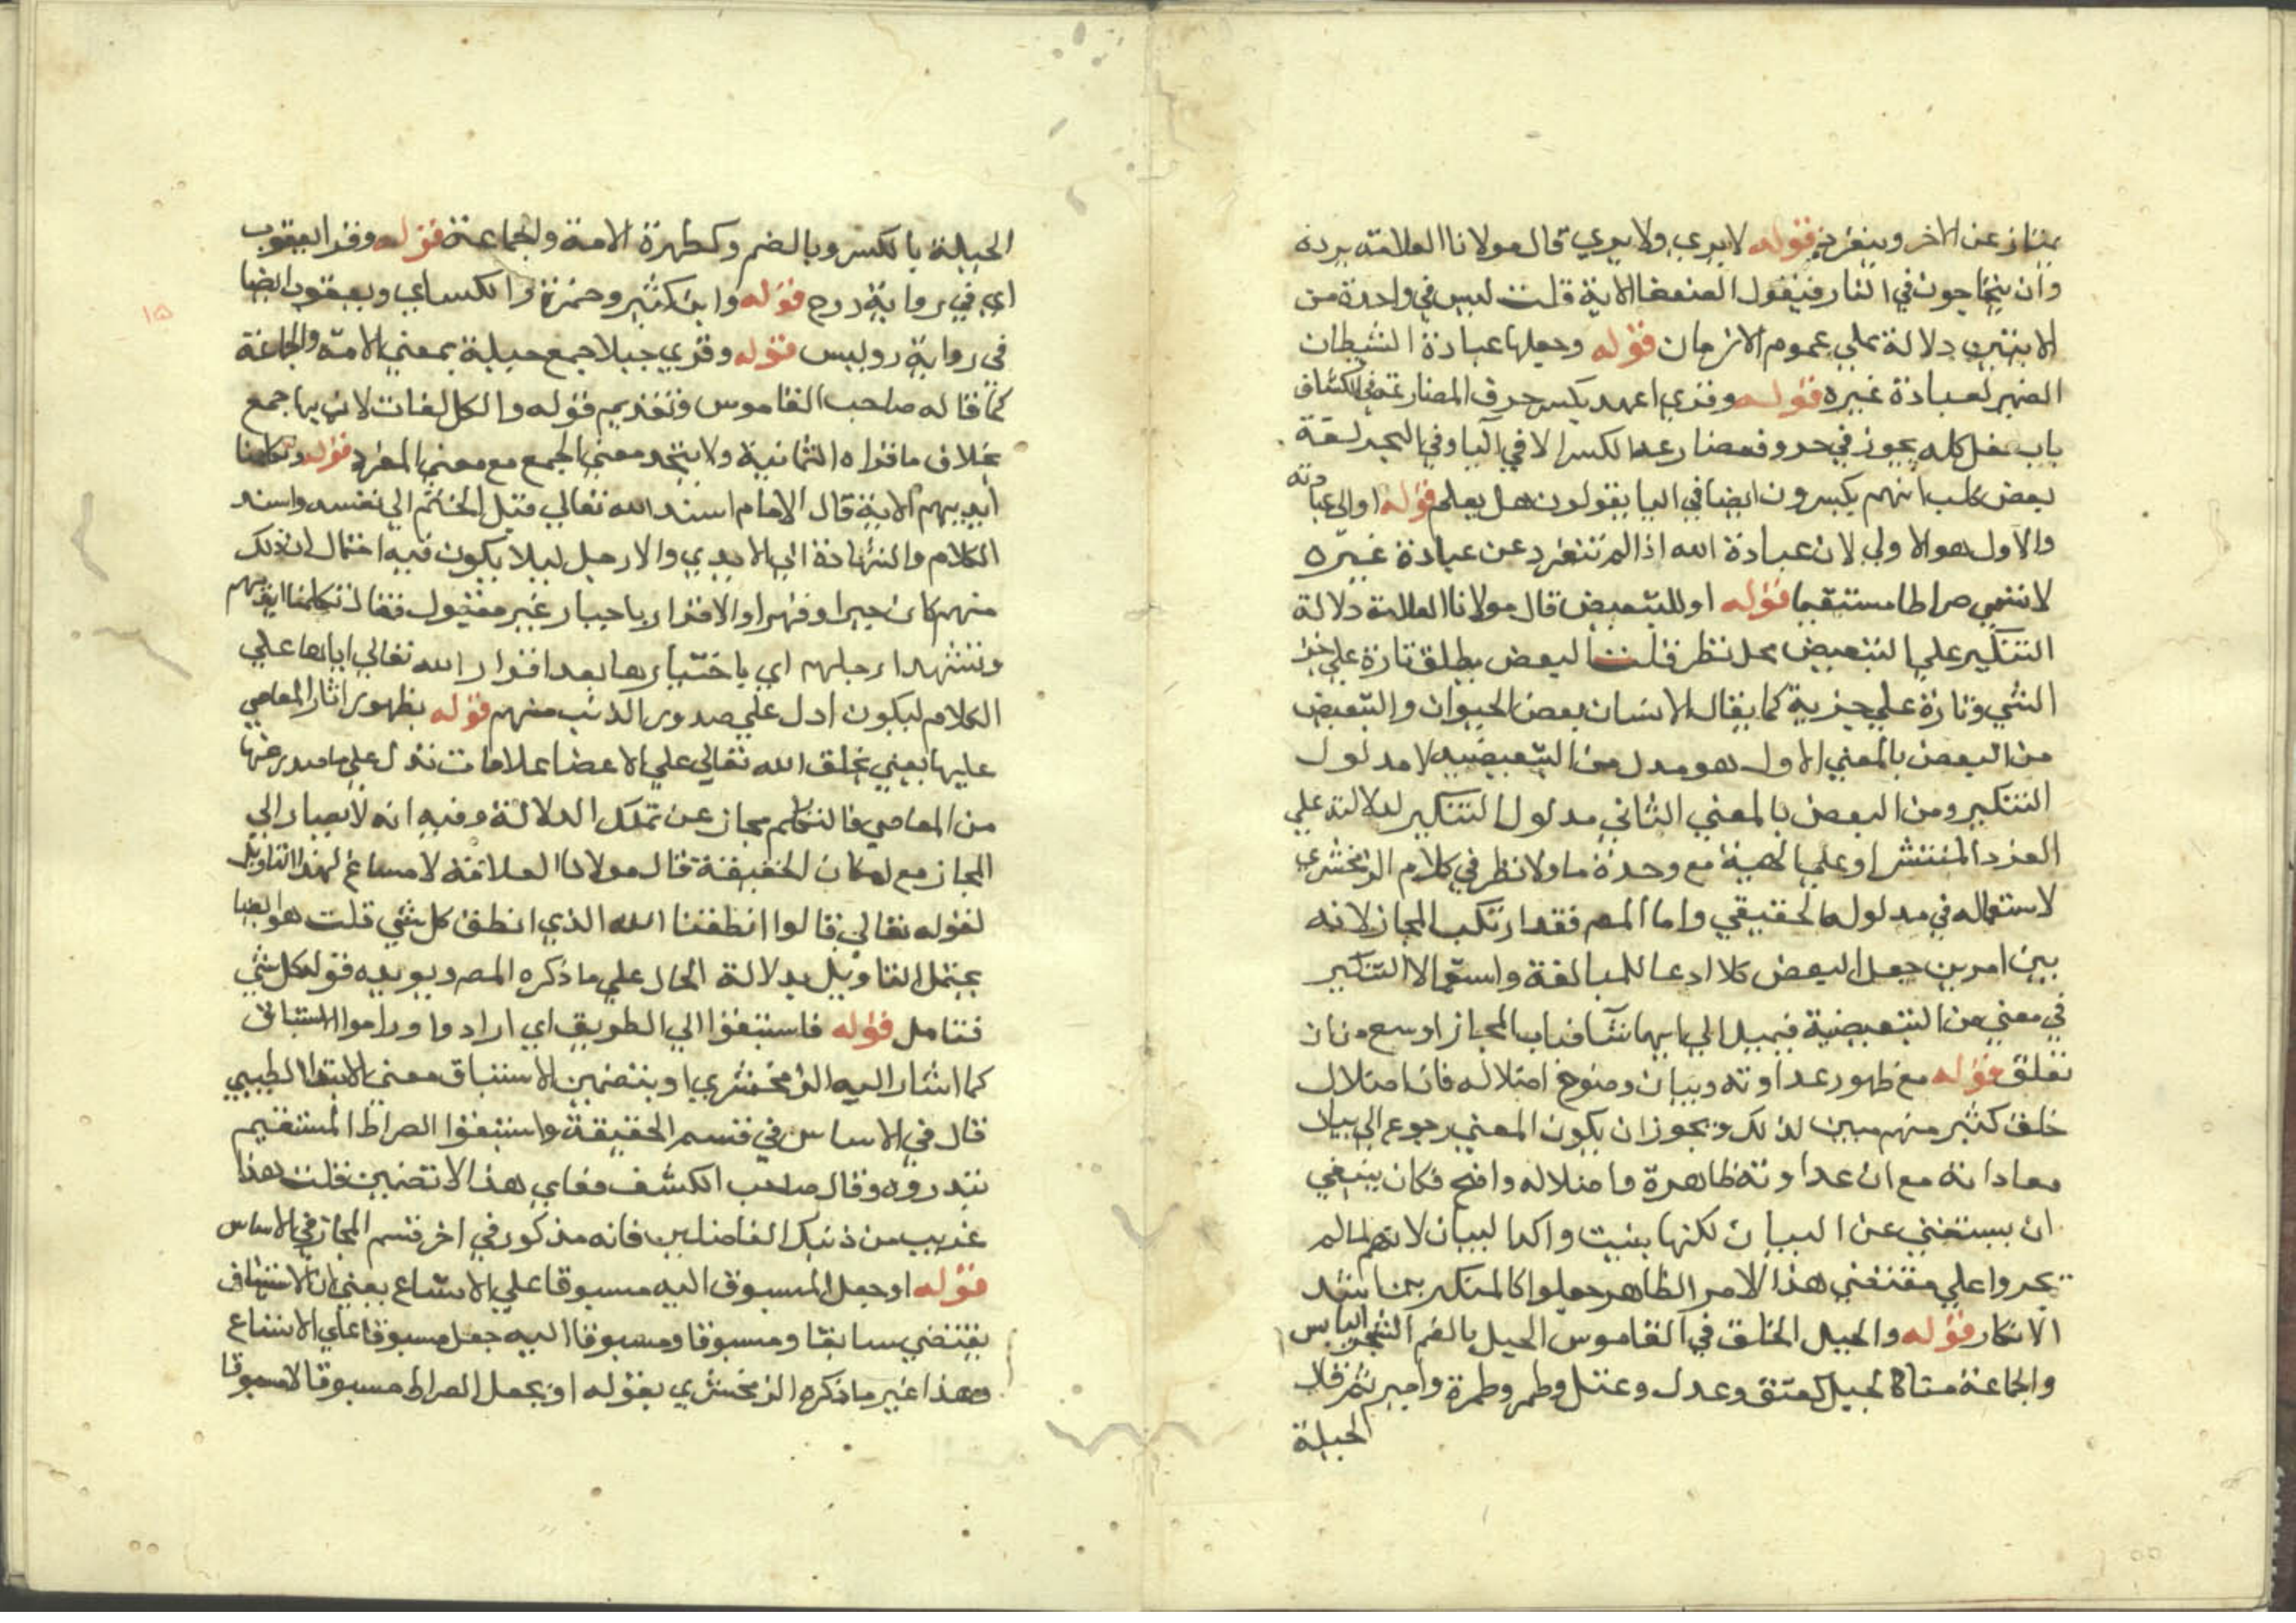 يمتاز عن الاخر وينفرد قوله لا يري ولا يري قال مولانا العلامة يرده
وان يتحاجون في النار فيقول الضعفا الاية قلت ليس في واحدة من
الايتين دلالة علي عموم الازمان قوله وجعلها عبادة الشيطان
الضمير لعبادة غيره قوله وقري اعهد بكسر حرف المضارعة في الكشاف
باب فعل كله يجوز في حروف مضارعه الكسر الا في اليا وفي البحر لغة
بعض كلب انهم يكسرون ايضا في اليا يقولون هل يعلم قوله او الي عبادته
والاول هو الاولي لان عبادة الله اذا لم تنفرد عن عبادة غيره
لا تسمي صراطا مستقيما قوله او للتبعيض قال مولانا العلامة دلالة
التنكير علي التبعيض محل نظر قلت البعض يطلق تارة علي جزء
الشي وتارة علي جزئية كما يقال الانسان بعض الحيوان والتبعيض
من البعض بالمعني الاول هو مدلول من التبعيضيه لا مدلول
التنكير ومن البعض بالمعني الثاني مدلول التنكير لدلالته علي
الفرد المنتشر او علي الماهية مع وحدة ما ولا نظر في كلام الزمخشري
لاستعماله في مدلوله الحقيقي واما المصر فقد ارتكب المجاز لانه
بين امرين جعل البعض كلا ادعا للمبالغة واستعمالا التنكير
في معني من التبعيضية فيميل الي ايهما شا فباب المجاز اوسع من ان
تغلق قوله مع ظهور عداوته وبيان وضوح اضلاله فان اضلال
خلق كثير منهم مبين لذلك ويجوز ان يكون المعني رجوع الي بيان
معاداته مع ان عداوته ظاهرة واضلاله واضح فكان ينبغي
ان يستغني عن البيان لكنها بينت واكد البيان لانهم لما لم
يجروا علي مقتضي هذا الامر الظاهر جعلوا كالمنكرين اشد
الانكار قوله والجبل الخلق في القاموس الجبل بالضم الشجر اليابس
والجماعة منا كالجبل كعنق وعدل وعتل وطمر وطمرة وامير ثم قال
الجبلة
الجبلة بالكسر وبالضم وكطمرة الامة والجماعة قوله وقرا يعقوب
اي في رواية روح قوله وابن كثير وحمزة والكسائي ويعقوب ايضا
في رواية رويس قوله وقري جبلا جمع جبلة بمعني الامة والجماعة
كما قاله صاحب القاموس وتقديم قوله والكل لغات لا ريبها جمع
بخلاف ما قراه الثمانية ولا يتحد معني الجمع مع معني المفرد قوله وتكلمنا
ايديهم الاية قال الامام اسند الله تعالي فعل الختم الي نفسه واسند
الكلام والشهادة الي الايدي والارجل ليلا يكون فيه احتمال ان ذلك
منهم كان جبرا وقهرا والاقرار باجبار غير مقبول فقال تكلمنا ايديهم
وتشهد ارجلهم اي باختيارها بعد اقدار الله تعالي اياها علي
الكلام ليكون ادل علي صدور الذنب منهم قوله بظهور اثار المعاصي
عليها يعني بخلق الله تعالي علي الاعضا علامات تدل علي ما صدر عنها
من المعاصي فالتكلم مجاز عن تلك الدلالة وفيه انه لا يصار الي
المجاز مع امكان الحقيقة قال مولانا العلامة لا مساغ لهذا التاويل
لقوله تعالي قالوا انطقنا الله الذي انطق كل شي قلت هو ايضا
يحتمل التاويل بدلالة الحال علي ما ذكره المصر ويويده قوله كل شي
فتامل قوله فاستبقوا الي الطريق اي ارادوا وراموا الاستباق
كما اشار اليه الزمخشري او بتضمين الاستباق معني الابتدار الطيبي
قال في الاساس في قسم الحقيقة واستبقوا الصراط المستقيم
يبتدروه وقال صاحب الكشف فعلي هذا لا تضمين قلت هذا
غريب من ذينك الفاضلين فانه مذكور في اخر قسم المجاز في الاساس
قوله او جعل المسبوق اليه مسبوقا علي الاتساع يعني ان الاستباق
يقتضي سابقا ومسبوقا ومسبوقا اليه جعل مسبوقا علي الاتساع
وهذا غير ما ذكره الزمخشري بقوله او يجعل الصراط مسبوقا لا مسبوقا
١٥